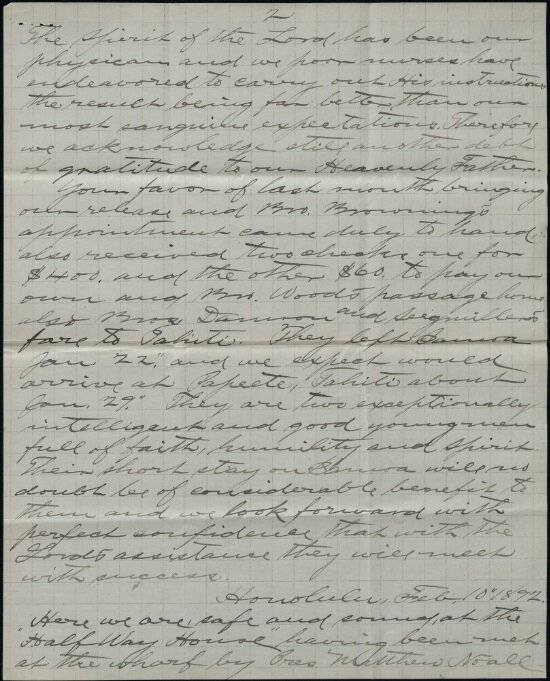 2
The Spirit of the Lord has been our
physican and we poor nurses have
endeavored to carry out His instructions
the result being far better than our
most sanguine expectations. Therefore
we acknowledge still another debt
of gratitude to our Heavenly Father.
Your favor of last month bringing
our release and Bro. Browning's
appointment came duly to hand.
also received two checks one for
$400. and the other $60. to pay our
own and Bro. Wood's passage home
also Bros Damron and Seegmiller's
fare to Tahiti. They left Samoa
Jan. 22" and we expect would
arrive at Papeete, Tahiti about
Jan. 29" They are two exceptionally
intelligent and good young men
full of faith, humility and spirit.
Their short stay on Samoa will no
doubt be of considerable benefit to
them and we look forward with
perfect confidence that with the
Lord's assistance they will meet
with success.
Honolulu, Feb. 10" 1892.
"Here we are, safe and sound, at the
Half Way House" having been met
at the wharf by Pres Matthew Noall